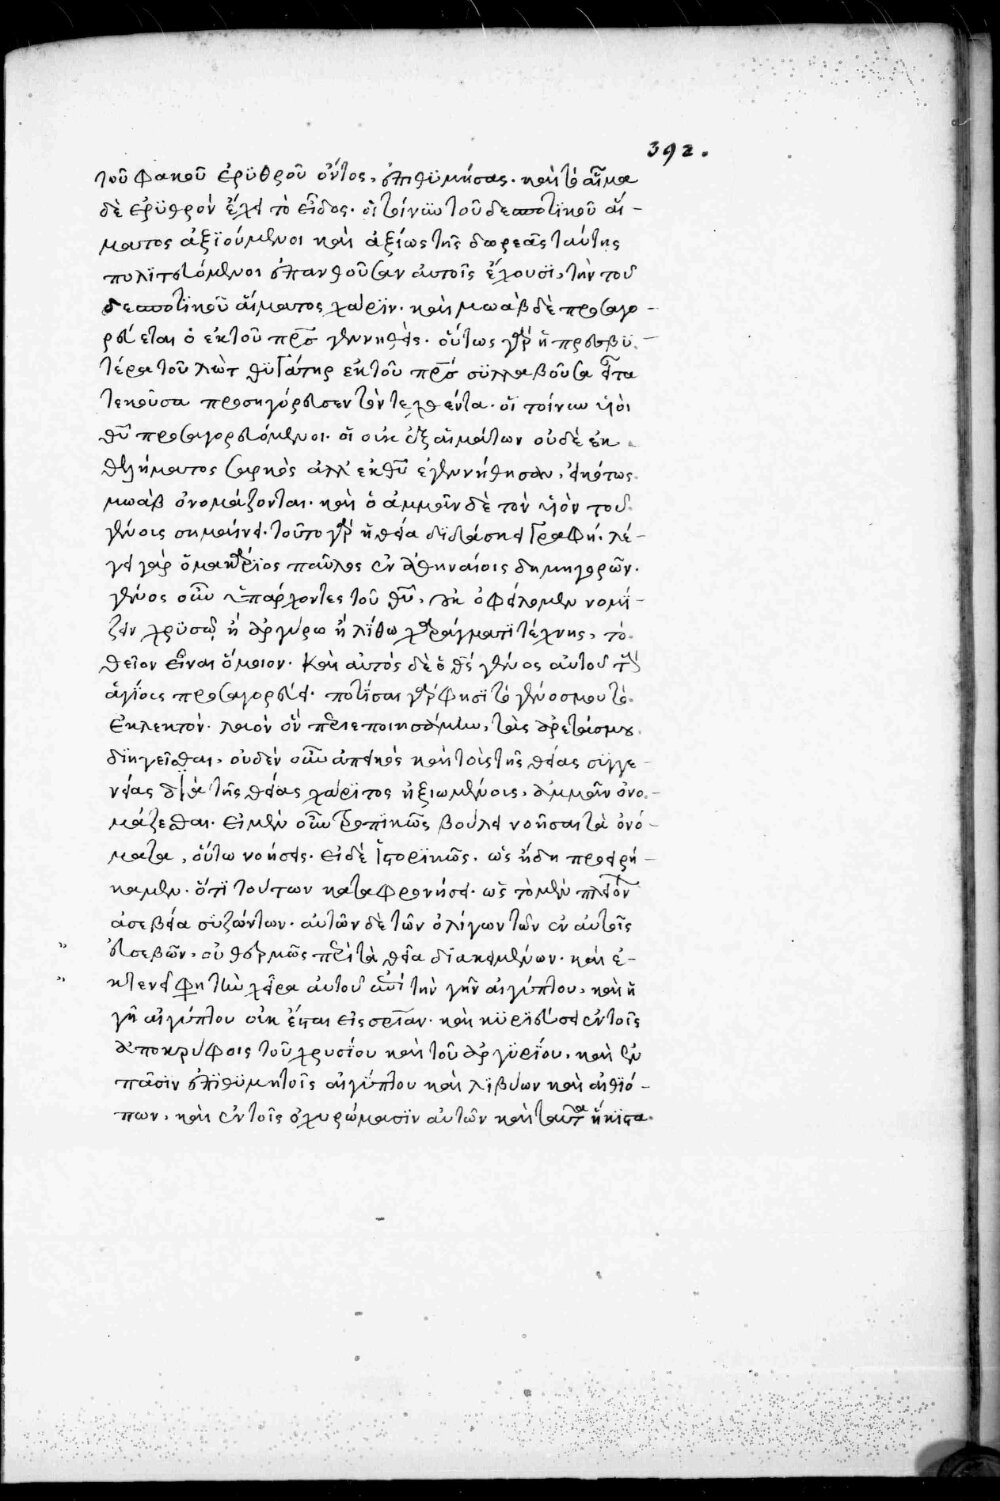 392.
τοῦ φακοῦ ἐρϋθροῦ ὄντος, ἐπιθϋμήσας. καὶ τὸ αἷμα
δὲ ἐρϋθρὸν ἔχει τὸ εἶδος. οἱ τοίνυν τοῦ δεσποτϊκοῦ αἵ-
ματος ἀξϊούμενοι καὶ ἀξίως τῆς δωρεᾶς ταύτης
πολϊτευόμενοι ἐπανθοῦσαν αὐτοῖς ἔχουσϊ, τὴν τοῦ
δεσποτϊκοῦ αἵματος χάρϊν. καὶ μωὰβ δὲ προσαγο-
ρεύεται ὁ ἐκ τοῦ πρσ γεννηθείς. οὕτως γὰρ ἡ πρεσβϋ-
τέρα τοῦ λὼτ θϋγάτηρ ἐκ τοῦ πρσ σϋλλαβοῦσα εἶτα
τεκοῦσα προσηγόρευσεν τὸν τεχθέντα. οἱ τοίνυν υἱοὶ
θῦ προσαγορευόμενοι. οἱ οὐκ ἐξ αἱμάτων οὐδὲ ἐκ
θελήματος σαρκὸς ἀλλ' ἐκ θῦ ἐγεννήθησαν, εἰκότως
μωὰβ ὀνομάζονται. καὶ ὁ ἀμμᾶν δὲ τὸν υἱὸν τοῦ
γένους σημαίνει. τοῦτο γὰρ ἡ θεία δϊδάσκει γραφή. λέ-
γει γὰρ ὁ μακάρϊος παῦλος ἐν ἀθηναίοις δημηγορῶν.
γένος οὖν ὑπάρχοντες τοῦ θῦ, οὐκ ὀφείλομεν νομί-
ζειν χρϋσῶ ἢ ἀργύρω ἢ λίθω χαράγματϊ τέχνης, τὸ
θεῖον εἶναι ὅμοιον. Καὶ αὐτὸς δὲ ὁ θς γένος αὐτοῦ τοὺς
ἁγίους προσαγορεύει. ποτίσαι γάρ φησϊ τὸ γένος μου τὸ
ἐκλεκτόν. λαὸν ὃν περιεποιησάμην, τὰς ἀρετάς μου
δϊηγεῖσθαι, οὐδὲν οὖν ἀπεικὸς καὶ τοὺς τῆς θείας σϋγγε-
νείας δϊὰ τῆς θείας χάρϊτος ἠξιωμένους, ἀμμᾶν ὀνο-
μάζεσθαι. εἰ μὲν οὖν τροπϊκῶς βούλει νοῆσαι τὰ ὀνό-
ματα, οὕτω νοήσεις. εἰ δὲ ἱστορϊκῶς. ὡς ἤδη προειρή-
καμεν. ὅτϊ τούτων καταφρονήσει. ὡς τὸ μὲν πλεῖον
ἀσεβεία σϋζώντων. αὐτῶν δὲ τῶν ὀλίγων τῶν ἐν αὐτοῖς
εὐσεβῶν, οὐ θερμῶς περὶ τὰ θεῖα δϊακειμένων. καὶ ἐ-
κτενεῖ φη τὴν χεῖρα αὐτοῦ ἐπὶ τὴν γῆν αἰγύπτου, καὶ ἡ
γῆ αἰγύπτου οὐκ ἔσται εἰς σρίαν. καὶ κϋρϊεύσει ἐν τοῖς
ἀποκρύφοις τοῦ χρυσίου καὶ τοῦ ἀργϋρίου, καὶ ἐν
πᾶσϊν ἐπϊθϋμητοῖς αἰγύπτου καὶ λϊβύων καὶ αἰθιό-
πων, καὶ ἐν τοῖς ὀχυρώμασϊν αὐτῶν καὶ ταῦτα ἥκϊστα.